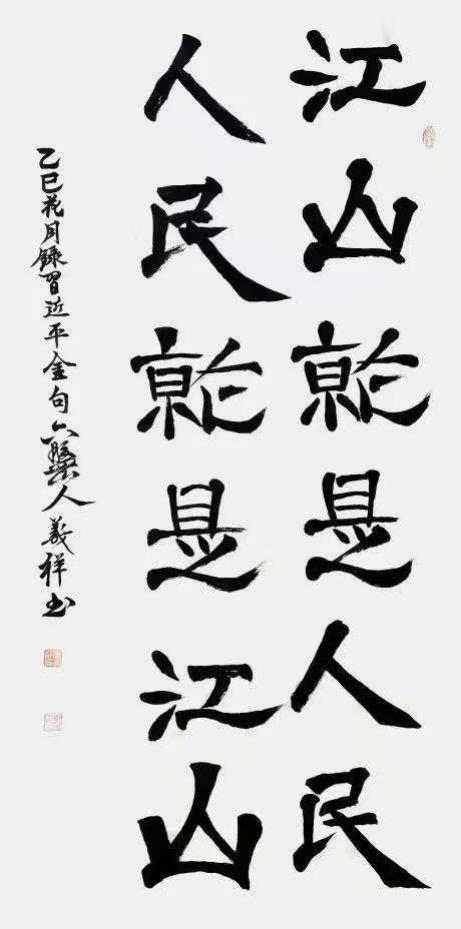 江山就是人民
人民就是江山
乙巳花月録習近平金句六槃人義祥书